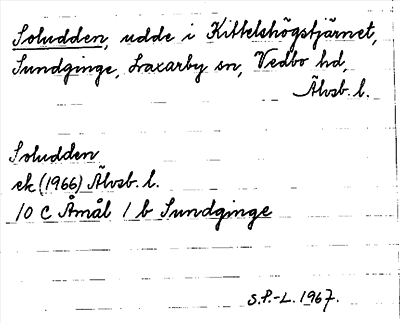 Soludden, udde i Kittelshögstjärnet,
Sundginge, Laxarby sn, Vedbo hd,
Älvsb. l.
Soludden
ek (1966) Älvsb. l.
10 C Åmål 1 b Sundginge
S.P.-L. 1967.